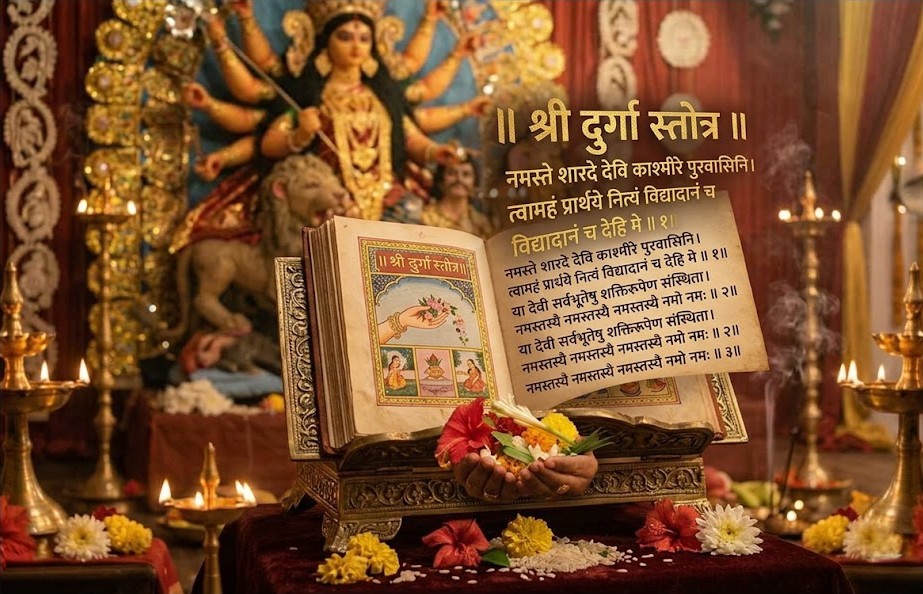 ॥ श्री दुर्गा स्तोत्र ॥
नमस्ते शारदे देवि काश्मीरे पुरवासिनि।
त्वामहं प्रार्थये नित्यं विद्यादानं च
विद्यादानं च देहि मे ॥ १॥
॥ श्री दुर्गा स्तोत्र॥
नमस्ते शारदे देवि काश्मीरे पुरवासिनि।
त्वामहं प्रार्थये नित्यं विद्यादानं च देहि मे ॥ १॥
या देवी सर्वभूतेषु शक्तिरुपेण संस्थिता।
नमस्तस्यै नमस्तस्यै नमस्तस्यै नमो नमः ॥ २॥
या देवी सर्वभूतेषु शक्तिरुपेण संस्थिता।
नमस्तस्यै नमस्तस्यै नमस्तस्यै नमो नमः ॥ २॥
नमस्तस्यै नमस्तस्यै नमस्तस्यै नमो नमः ॥ ३॥